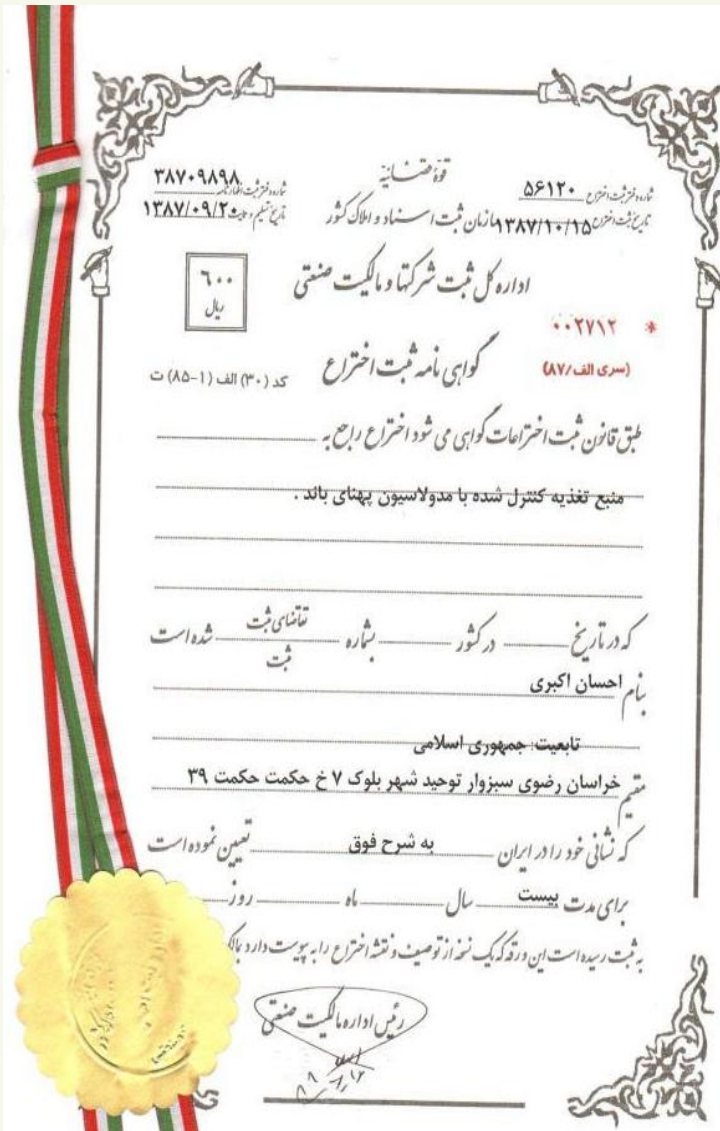 قوه قضائیه
شماره دفتر ثبت اختراع ۵۶۱۲۰
شماره دفتر ثبت اظهارنامه ۳۸۷۰۹۸۹۸
تاریخ ثبت اختراع ۱۳۸۷/۱۰/۱۵
سازمان ثبت اسناد و املاک کشور
تاریخ تسلیم و ۱۳۸۷/۰۹/۲۰
اداره کل ثبت شرکتها و مالکیت صنعتی
۶۰۰
ریال
* ۰۰۲۷۱۲
(سری الف/۸۷)
گواهی نامه ثبت اختراع
کد (۳۰) الف (۱-۸۵) ت
طبق قانون ثبت اختراعات گواهی می شود اختراع راجع به
منبع تغذیه کنترل شده با مدولاسیون پهنای باند .
که در تاریخ در کشور بشماره تقاضای ثبت شده است
ثبت
بنام احسان اکبری
تابعیت: جمهوری اسلامی
مقیم خراسان رضوی سبزوار توحید شهر بلوک ۷ خ حکمت حکمت ۳۹
که نشانی خود را در ایران به شرح فوق تعیین نموده است
برای مدت بیست سال ماه روز
به ثبت رسیده است این ورقه که یک نسخه از توصیف و نقشه اختراع را به پیوست دارد
رئیس اداره مالکیت صنعتی